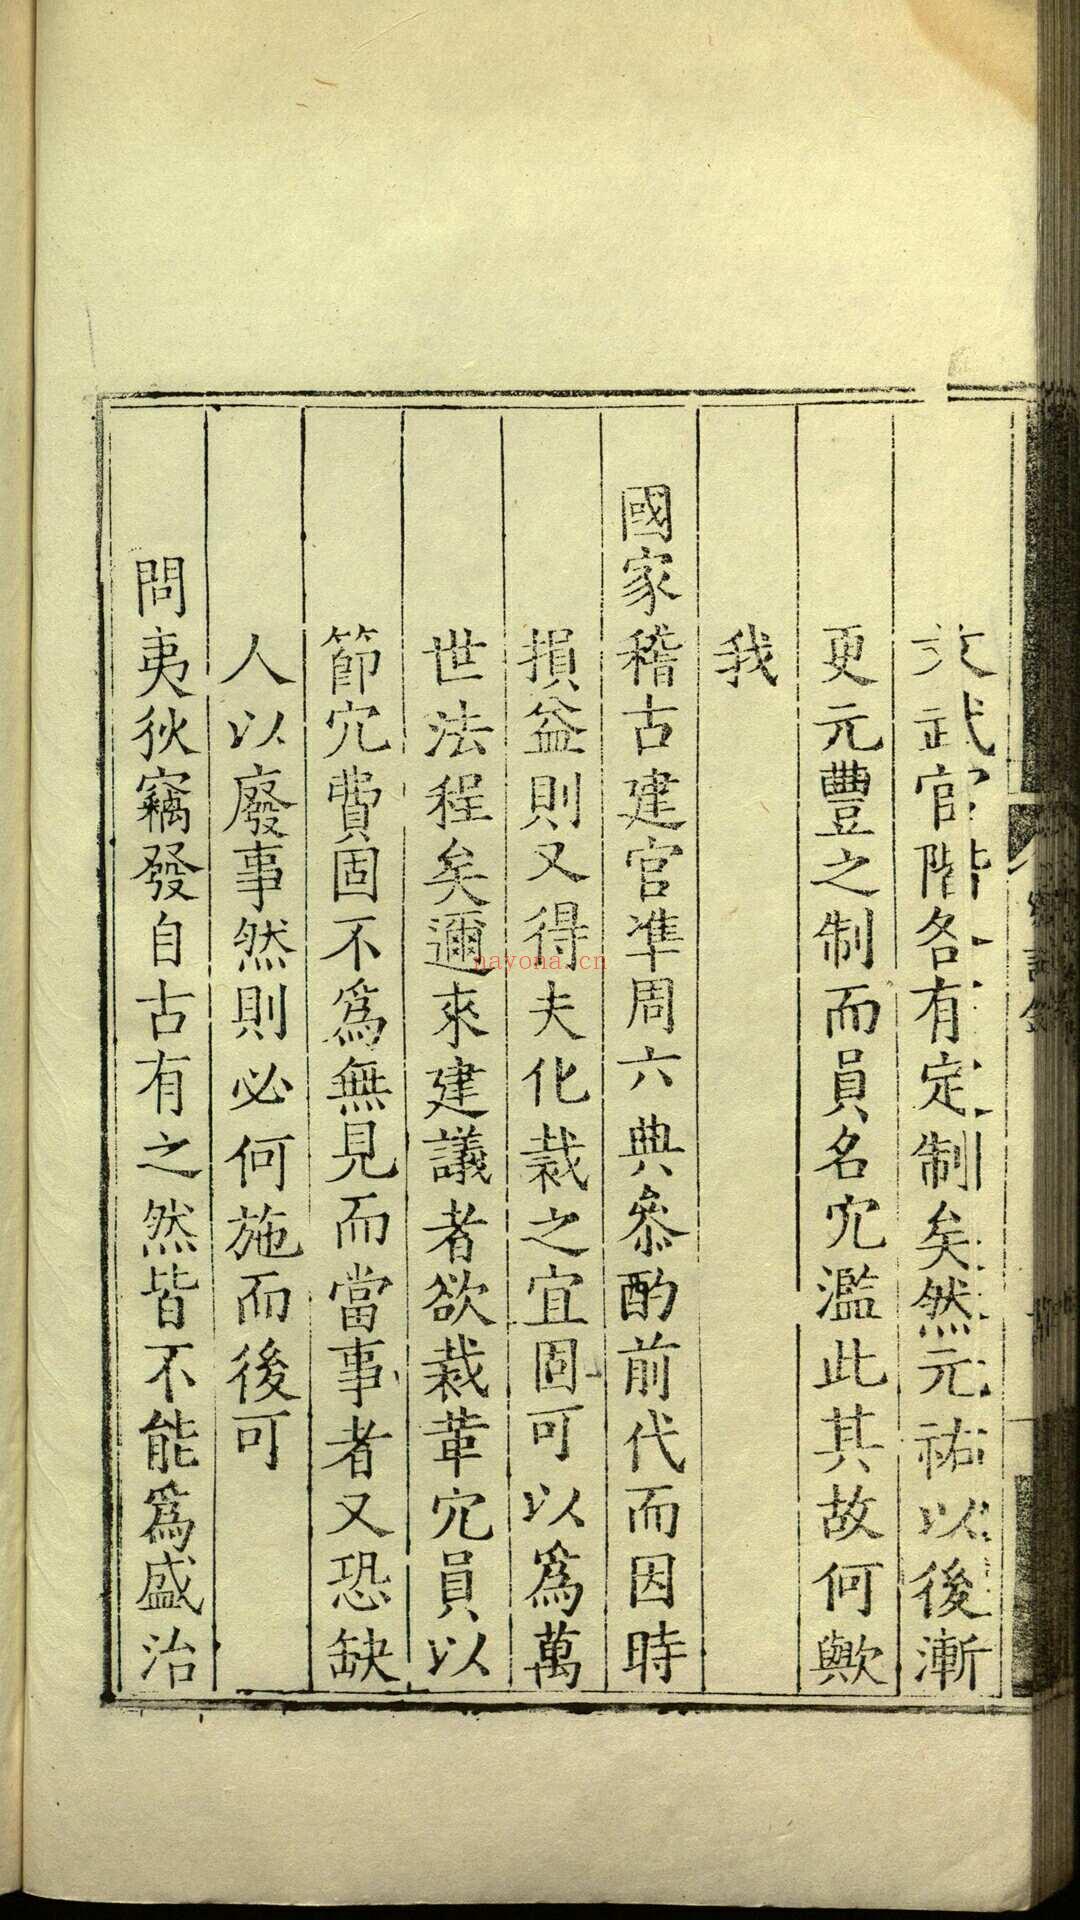 文武官階各有定制矣然元祐以後漸
更元豐之制而員名宂濫此其故何歟
我
國家稽古建官準周六典叅酌前代而因時
損益則又得夫化裁之宜固可以為萬
世法程矣邇來建議者欲裁革宂員以
節宂費固不為無見而當事者又恐缺
人以廢事然則必何施而後可
問夷狄竊發自古有之然皆不能為盛治
nayona.cn